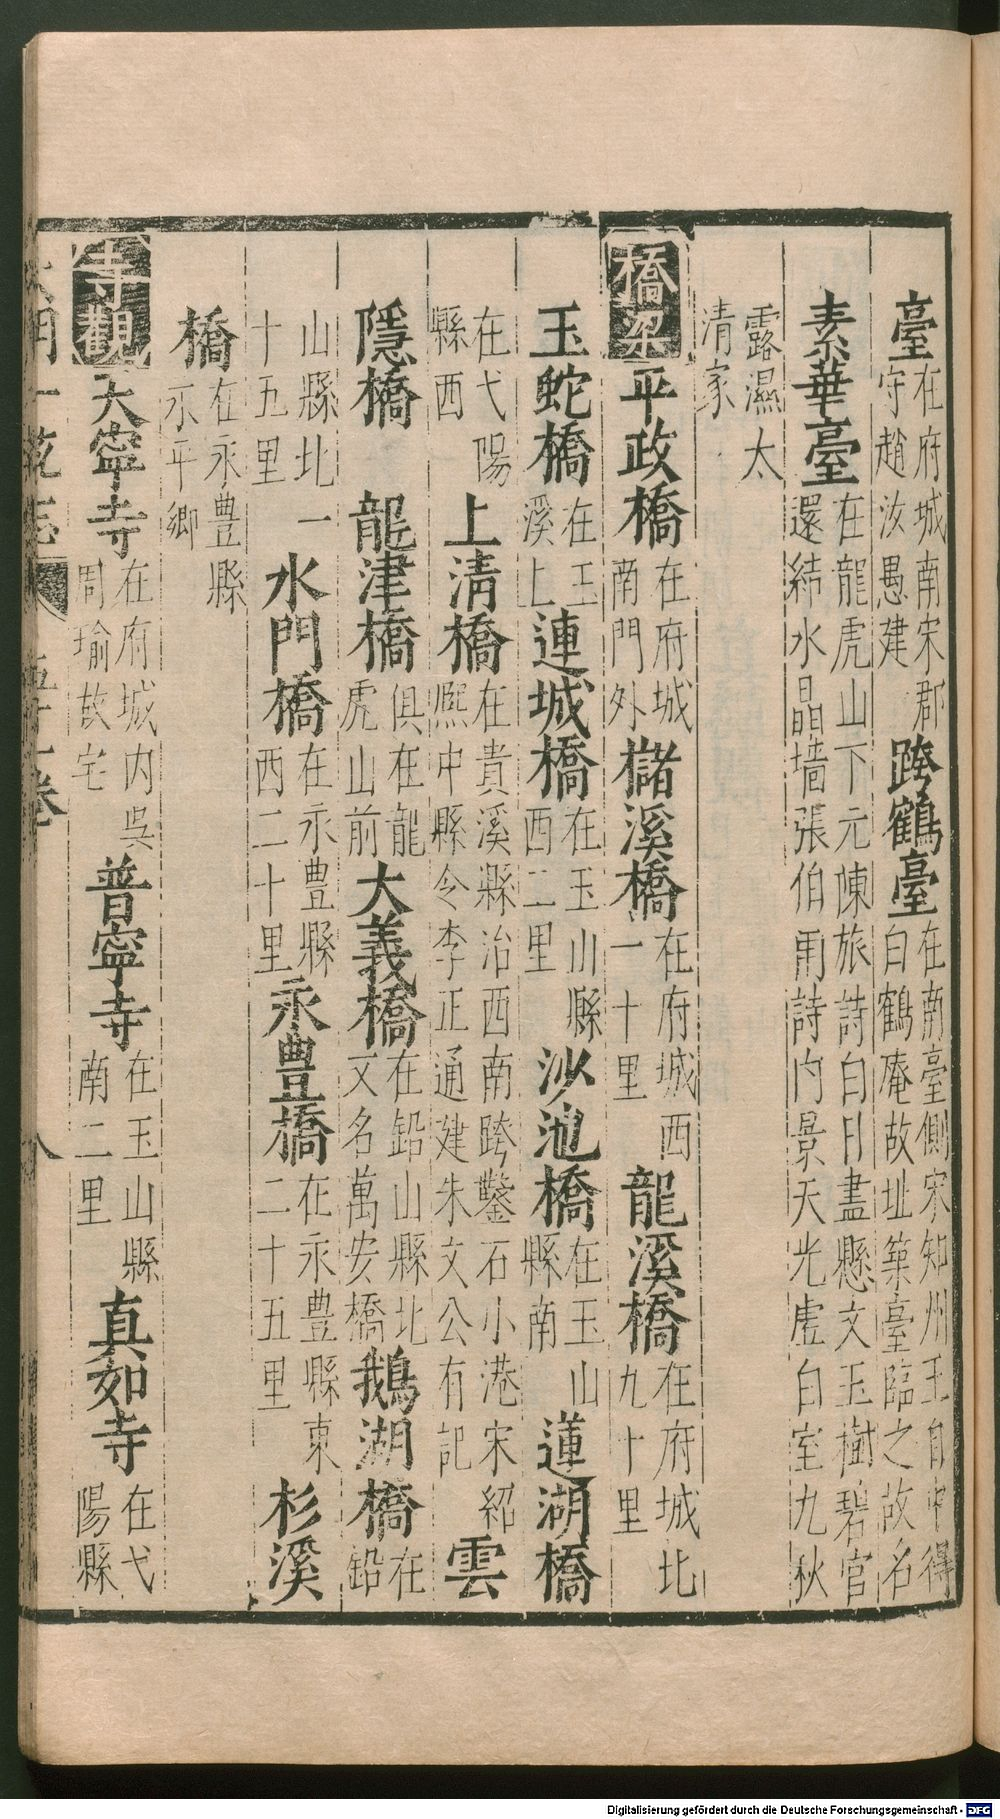 臺在府城南宋郡守趙汝愚建 跨鶴臺在南臺側宋知州王自中得白鶴庵故址築臺臨之故名
素華臺在龍虎山下元陳旅詩白日晝懸文玉樹碧官還結水晶墻張伯雨詩內景天光虛白室九秋
露濕太清家
橋梁 平政橋在府城南門外 櫧溪橋在府城西一十里 龍溪橋在府城北九十里
玉蛇橋在玉溪上 連城橋在玉山縣西二里 沙池橋在玉山縣南 蓮湖橋
在弋陽縣西 上清橋在貴溪縣治西南跨鑿石小港宋紹熙中縣令李正通建朱文公有記 雲
隱橋 龍津橋俱在龍虎山前 大義橋在鉛山縣北又名萬安橋 鵝湖橋在鉛
山縣北一十五里 水門橋在永豊縣西二十里 永豊橋在永豊縣東二十五里 杉溪
橋在永豊縣示平鄉
寺觀 大寧寺在府城內吳周瑜故宅 普寧寺在玉山縣南二里 真如寺在弋陽縣
大明一統志 五十一卷 八
Digitalisierung gefördert durch die Deutsche Forschungsgemeinschaft - DFG